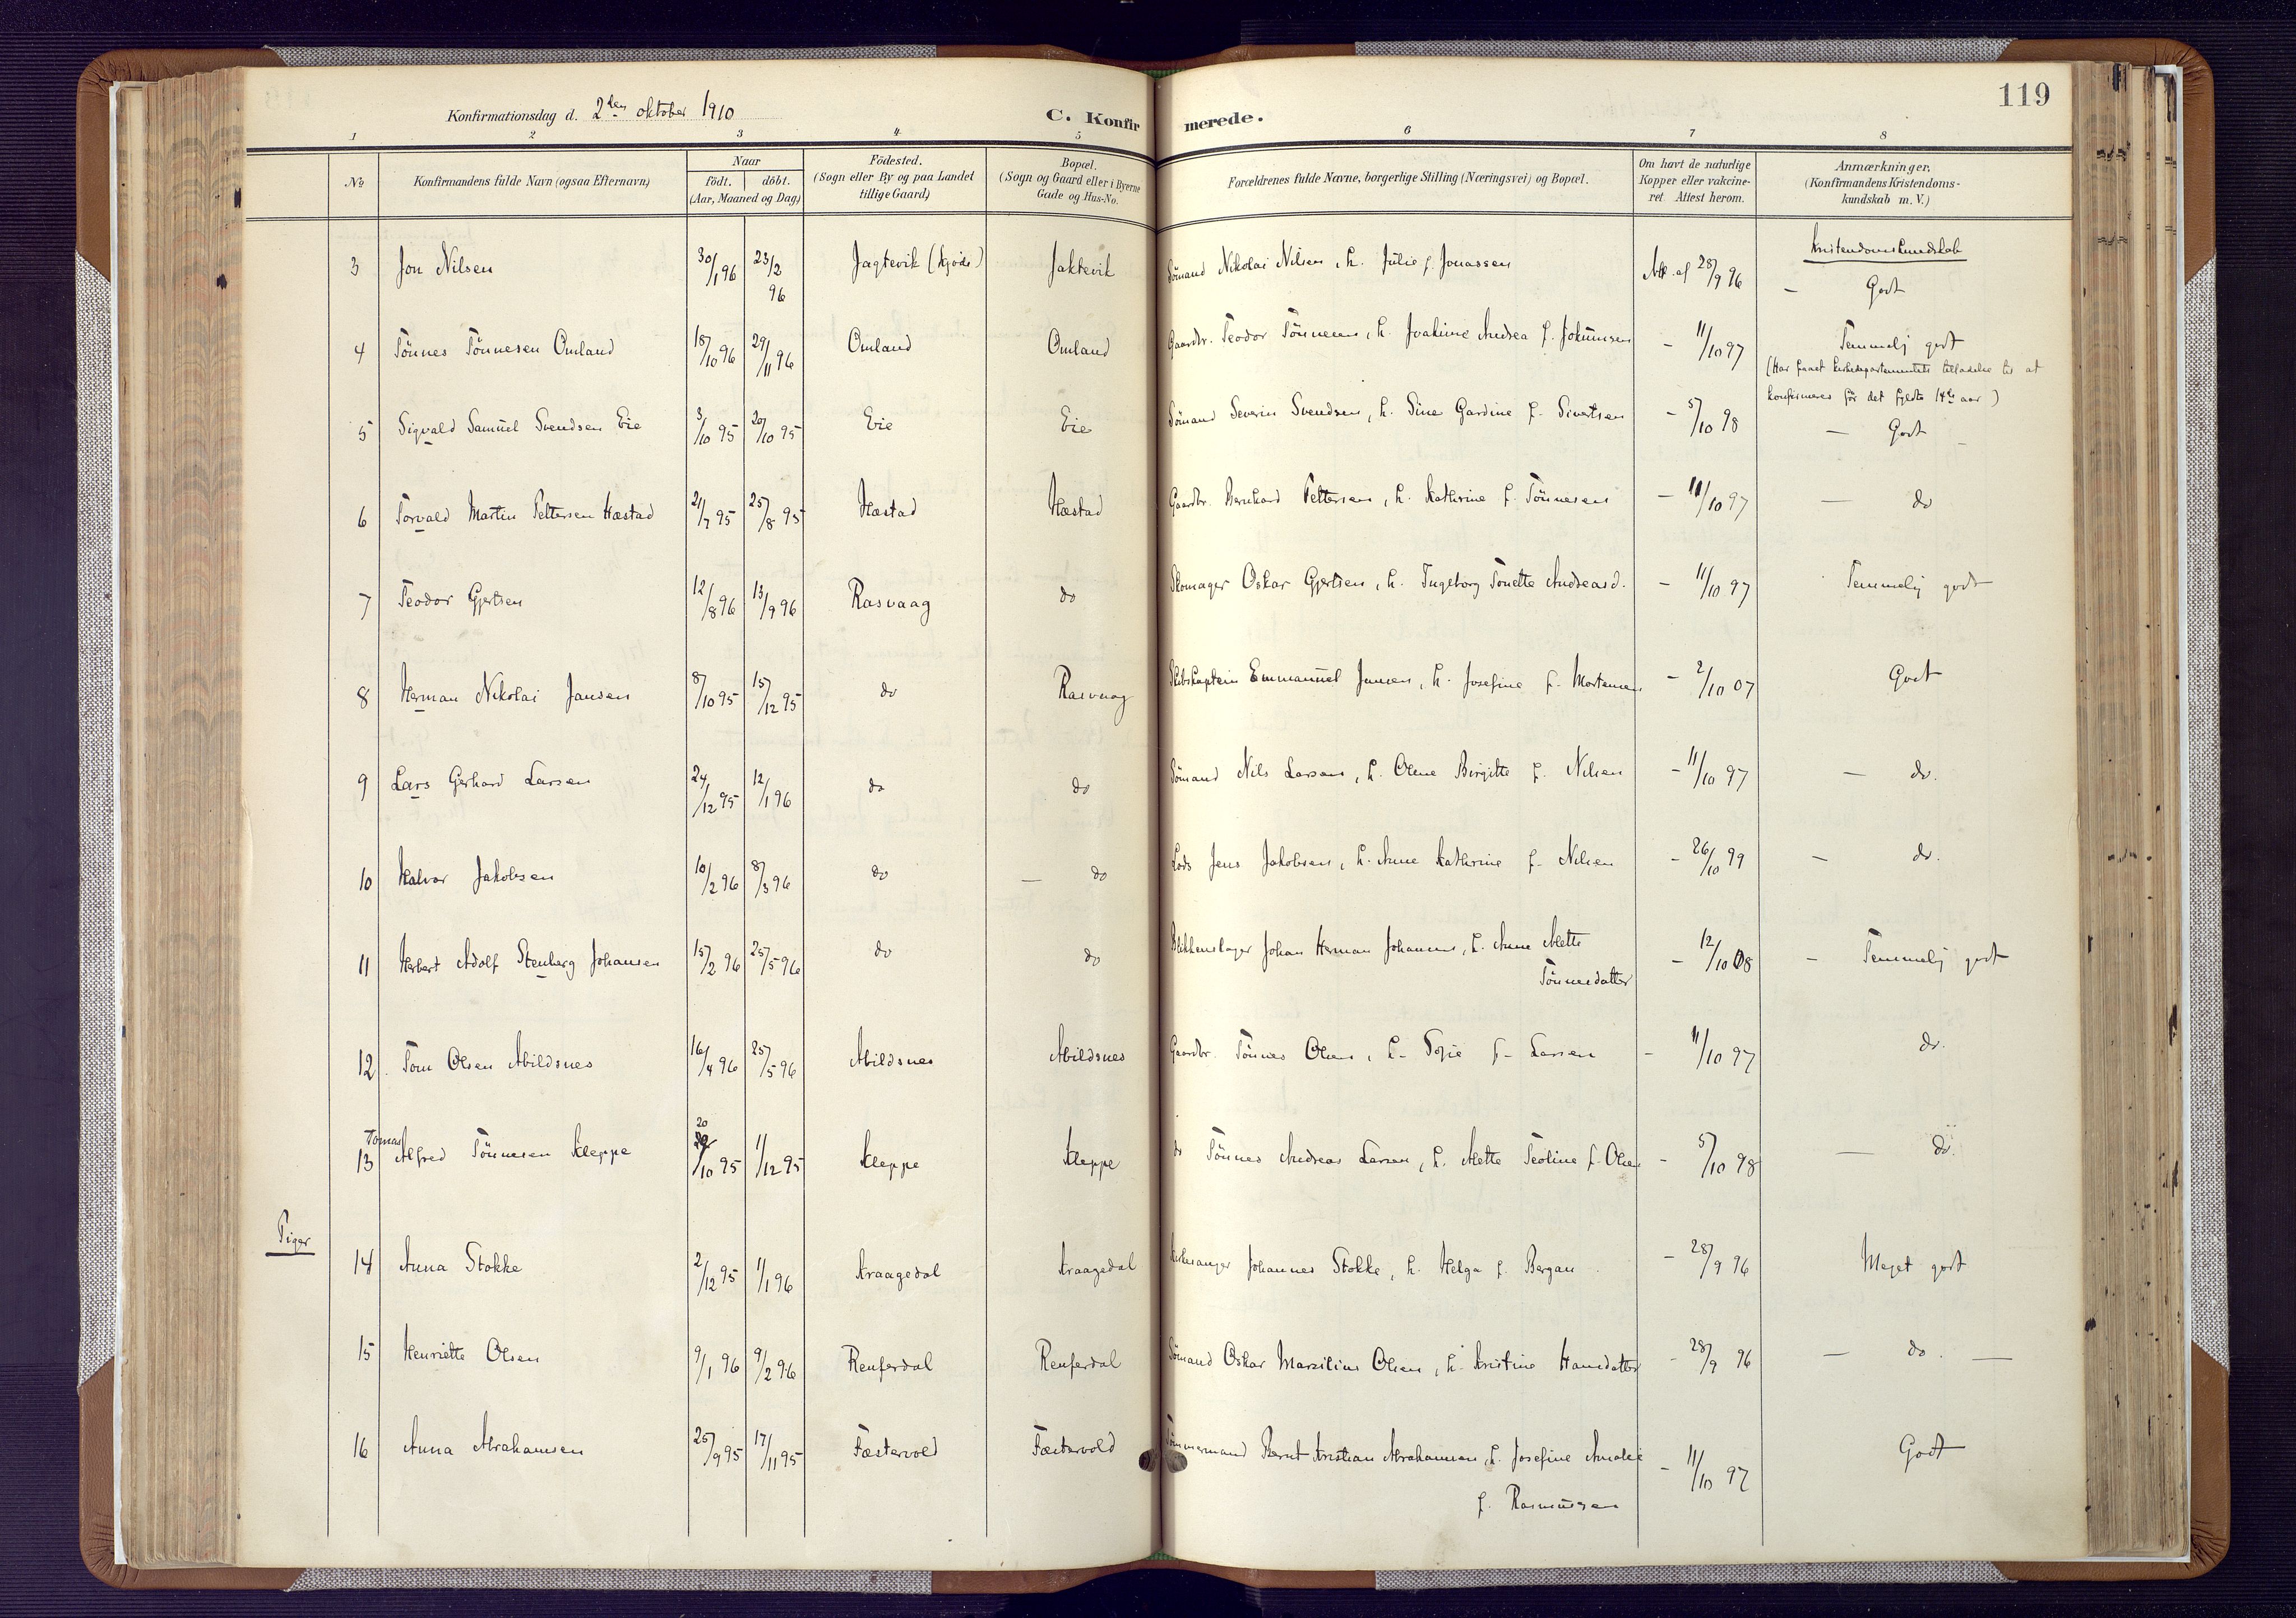 119
Konfirmationsdag d. 2den oktober 1910
C. Konfirmerede.
1 2 3 4 5 6 7 8
No Konfirmandens fulde Navn (ogsaa Efternavn) Naar födt. döbt. (Aar, Maaned og Dag) Födested. (Sogn eller By og paa Landet tillige Gaard) Bopæl. (Sogn og Gaard eller i Byerne Gade og Hus-No. Forældrenes fulde Navne, borgerlige Stilling (Næringsvei) og Bopæl. Om havt de naturlige Kopper eller vakcineret. Attest herom. Anmærkninger. (Konfirmandens Kristendomskundskab m. V.)
Kristendomskundskab
3 Jon Nilsen 30/1 96 23/2 96 Jagtevik Jaktevik Sömand Nikolai Nilsen, h. Julie f. Jonassen Att. af 28/9 96 – Godt
4 Tönnes Tönnesen Omland 18/10 96 29/11 96 Omland Omland Gaardbr. Teodor Tönnesen, h. Joakime Andrea f. – 11/10 97 Temmelij godt
(Har faaet Kirkedepartementets tilladelse til at
konfirmeres för det fyldte 14de aar)
5 Sigvald Samuel Svendsen Eie 3/10 95 20/10 95 Eie Eie Sömand Severin Svendsen, h. Sine Gardine f. Sivertsen – 5/10 98 – Godt –
6 Torvald Martin Pettersen Hæstad 21/7 95 25/8 95 Hæstad Hæstad Gaardbr. Bernhard Pettersen, h. Kathrine f. Tönnesen – 11/10 97 – do
7 Teodor Gjertsen 12/8 96 13/9 96 Rasvaag do Skomager Oskar Gjertsen, h. Ingeborg Tonette Andreasd. – 11/10 97 Temmelij godt
8 Herman Nikolai Jansen 8/10 95 15/12 95 do Rasvaag Skibskaptein Emmanuel Jansen, h. Josefine f. Mortensen – 2/10 07 Godt
9 Lars Gerhard Larsen 24/12 95 12/1 96 do do Sömand Nils Larsen, h. Olene Birgitte f. Nilsen – 11/10 97 – do.
10 Halvor Jakobsen 10/2 96 8/3 96 do – do Lods Jens Jakobsen, h. Anne Kathrine f. Nilsen – 26/10 99 – do.
11 Herbert Adolf Stenberg Johansen 15/2 96 25/5 96 do do Blikkenslager Johan Herman Johansen, h. Anne Alette – 12/10 08 – Temmelij godt
Tönnesdatter
12 Tom Olsen Abildsnes 16/4 96 25/5 96 Abildsnes Abildsnes Gaardbr. Tönnes Olsen, h. Sofie f. Larsen – 11/10 97 do.
Tomas 20
13 Alfred Tönnesen Kleppe /10 95 1/12 95 Kleppe Kleppe do Tönnes Andreas Larsen, h. Alette Teoline f. Olsen – 5/10 98 – do.
Piger
14 Anna Stokke 2/12 95 1/1 96 Kraagedal Kraagedal Kirkesanger Johannes Stokke, h. Helga f. Bergan – 28/9 96 Meget godt
15 Henriette Olsen 9/1 96 9/2 96 Renferdal Renferdal Sömand Oskar Marzilius Olsen, h. Kristine Hansdatter – 28/9 96 – do. –
16 Anna Abrahamsen 25/9 95 17/11 95 Fæstervold Fæstervold Tömmermand Bernt Kristian Abrahamsen, h. Josefine Amalie – 11/10 97 Godt
f. Rasmussen